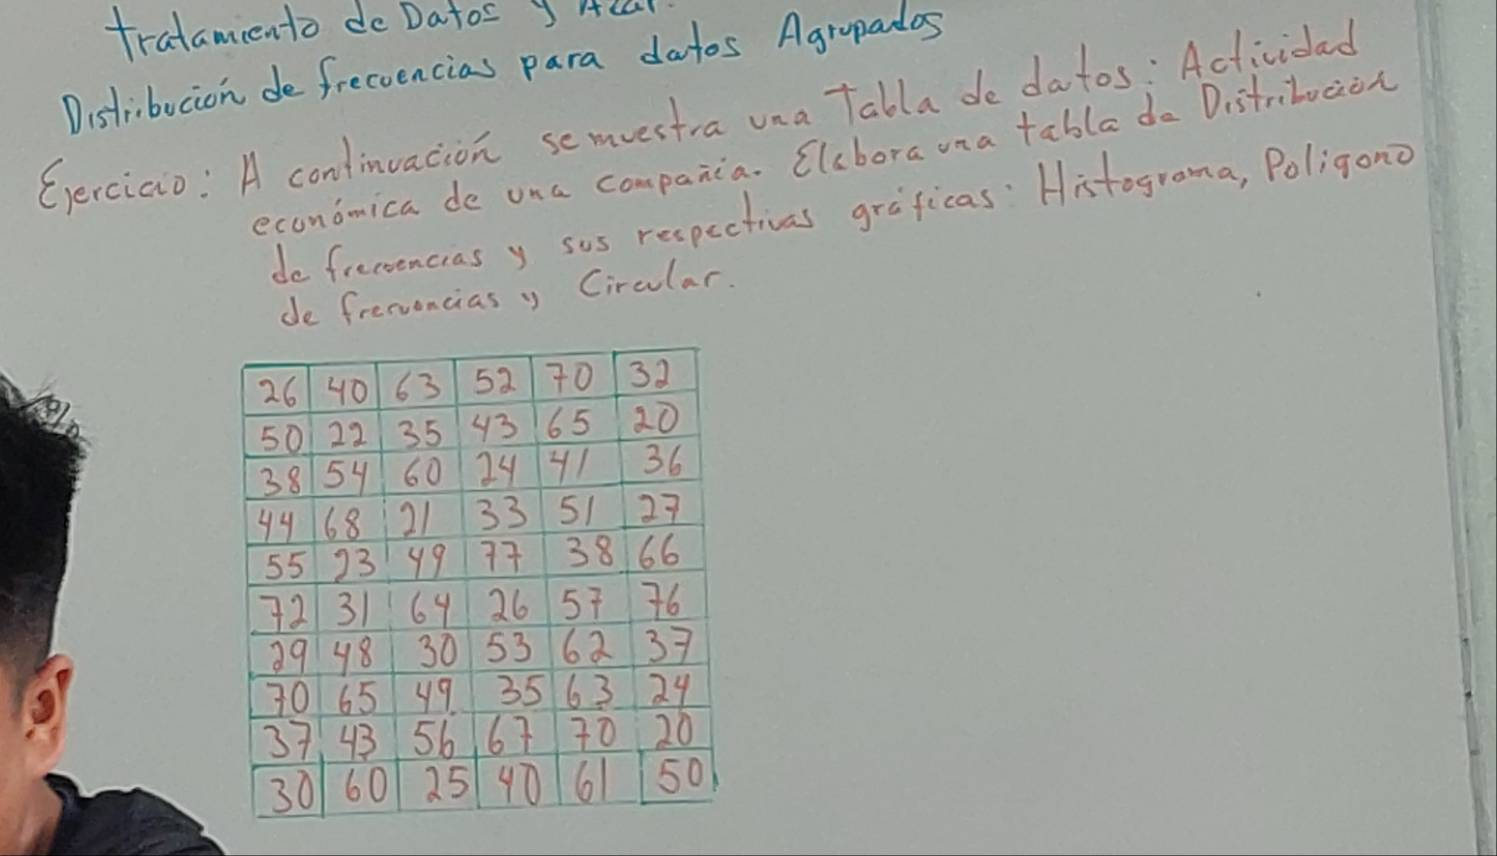 tratamiento de Datos y Azar.
Distribución de frecuencias para datos Agrupados
Ejercicio: A continuación se muestra una Tabla de datos: Actividad
económica de una compañia. Elabora una tabla de Distribución
de frecuencias y sus respectivas gráficas: Histograma, Poligono
de frecuencias y Circular.
26 40 63 52 70 32
50 22 35 43 65 20
38 54 60 24 41 36
44 68 21 33 51 27
55 23 49 77 38 66
72 31 64 26 57 76
29 48 30 53 62 37
70 65 49 35 63 24
37 43 56 67 70 20
30 60 25 40 61 50